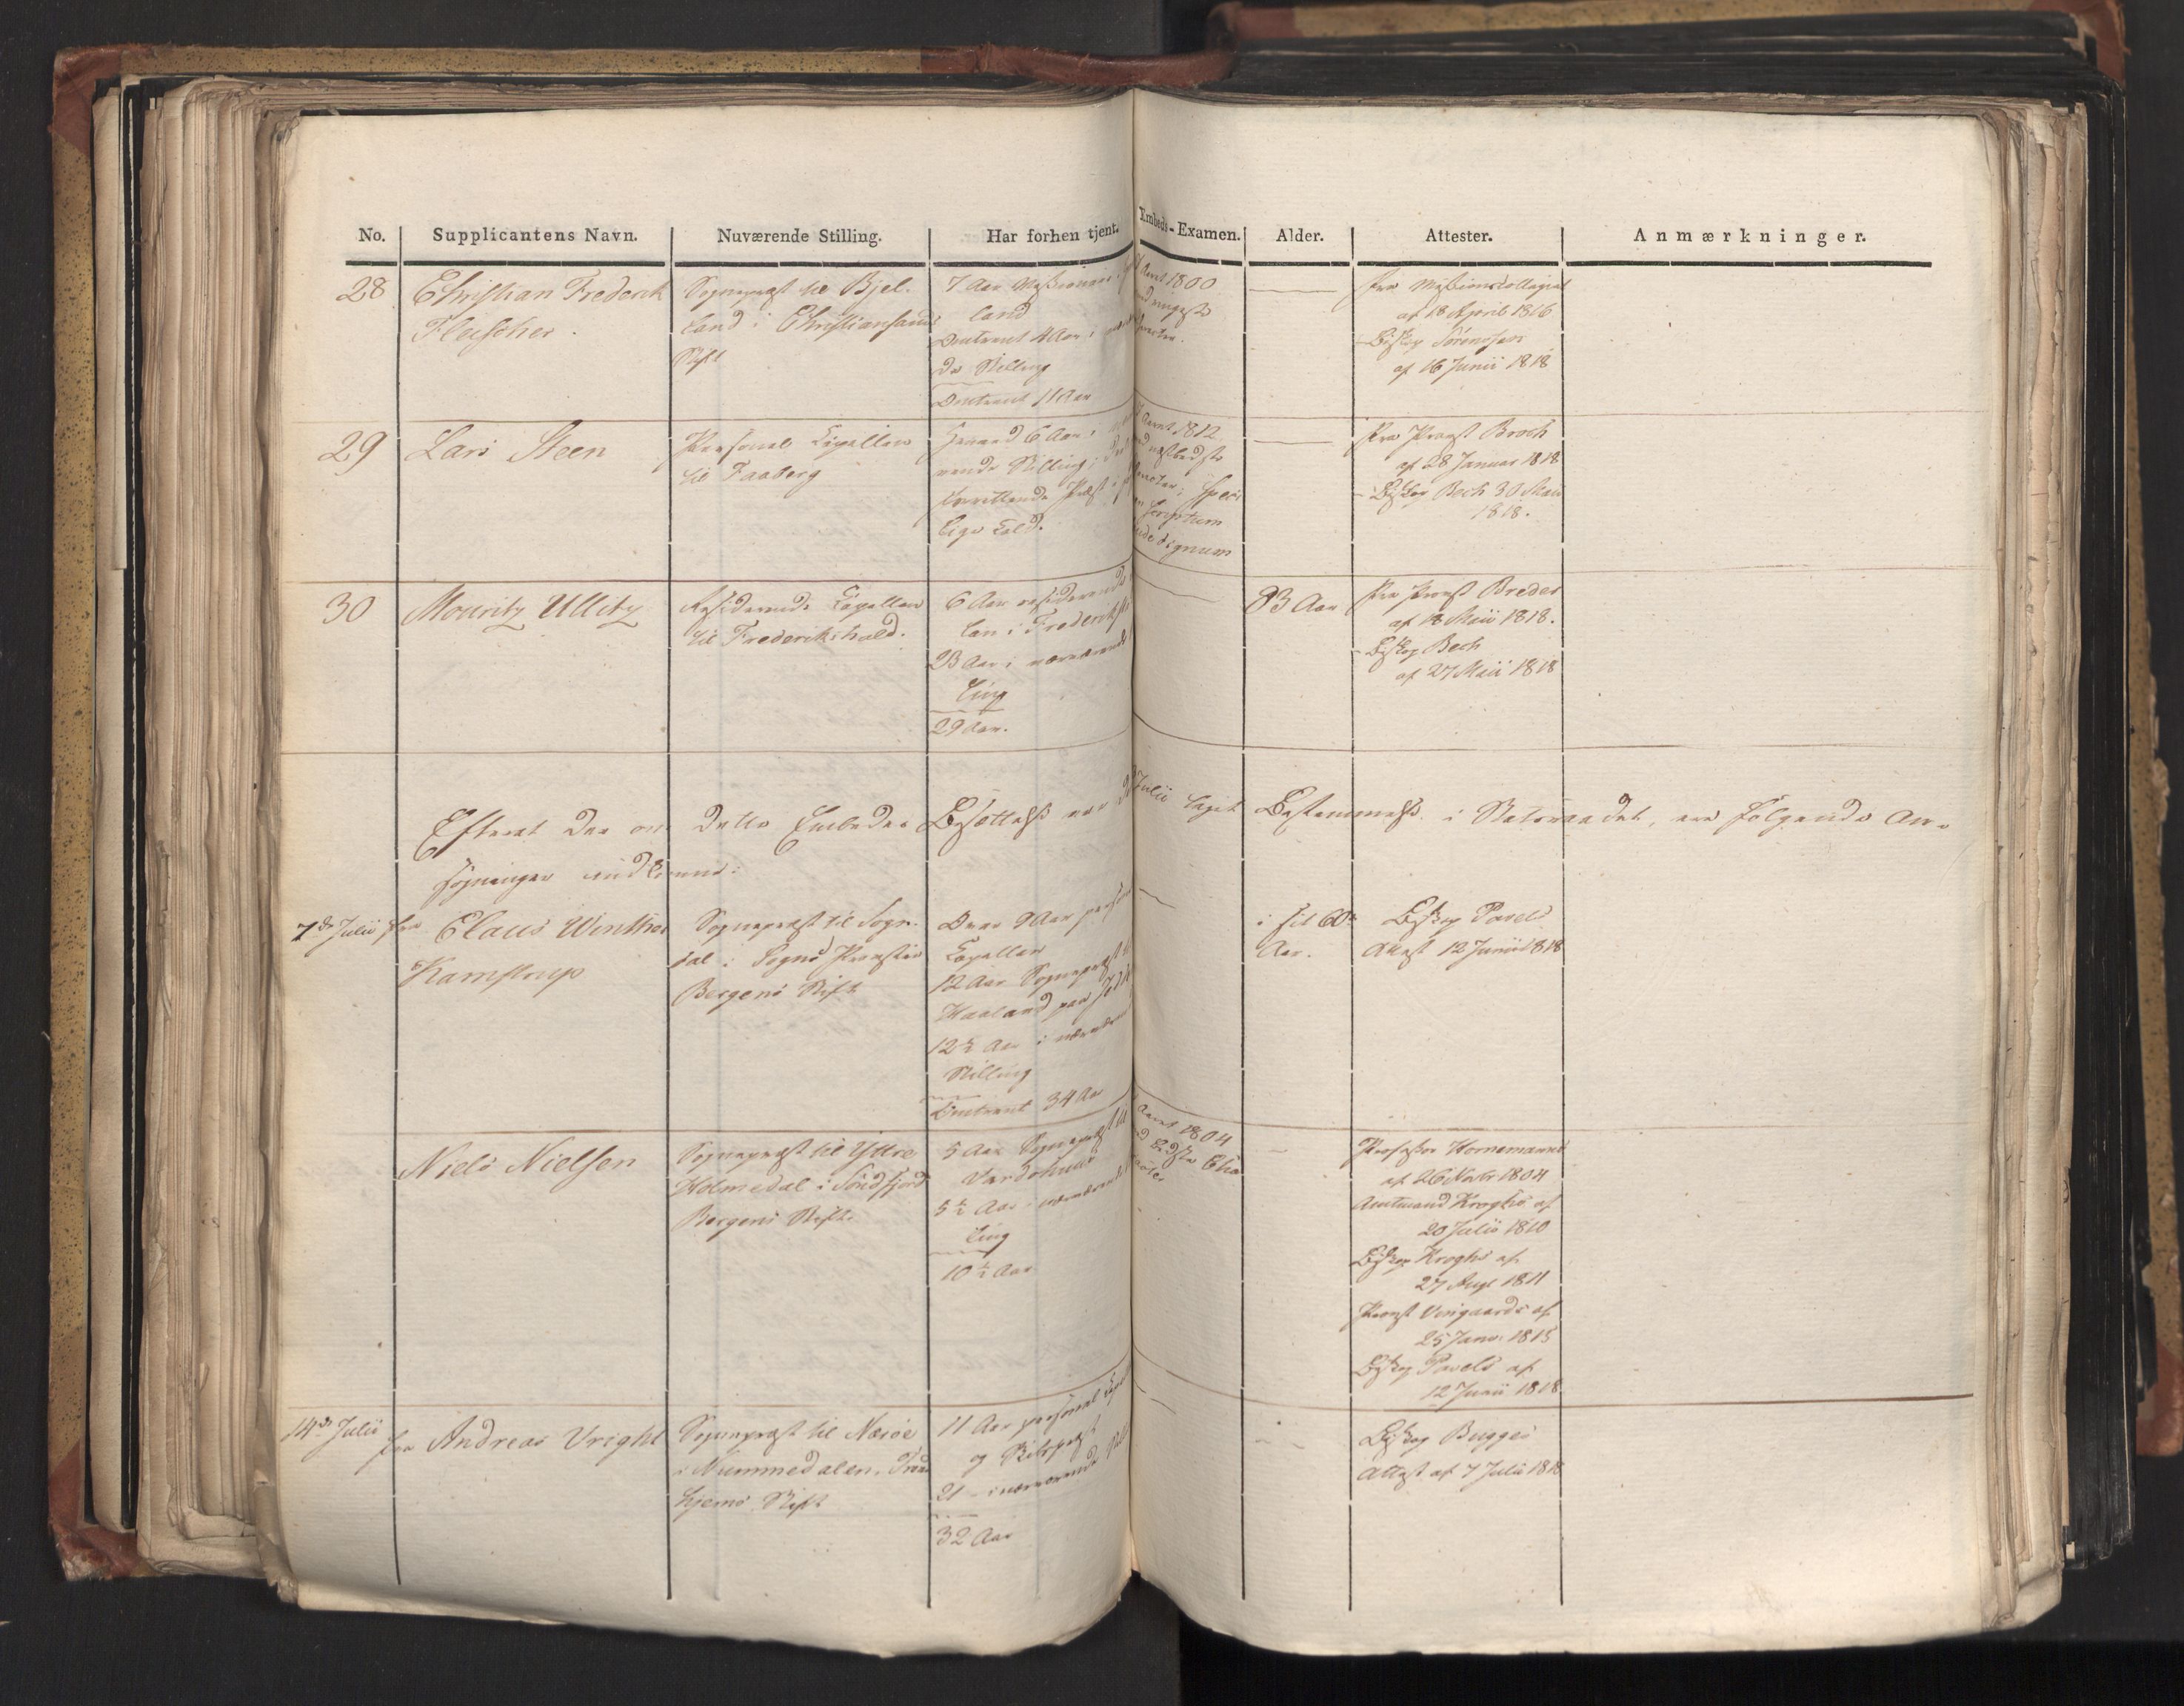 No. Supplicantens Navn. Nuværende Stilling. Har forhen tjent. Embeds-Examen. Alder. Attester. Anmærkninger.
28
Christian Frederik
Fleischer.
Sognepræst til Bjel-
land i Christiansands
Stift
7 Aar Missionair i
land
Omtrent 4 Aar i
de Stilling
Omtrent 11 Aar
Aaret 1800
fra Missionscollegiet
af 18 April 1816
- Biskop Sörenssen
af 16 Junii 1818
29
Lars Steen
Personel Capellan
til Faaberg
6 Aar i
rende Stilling;
Præst i
lige Kald.
Aaret 1812
næstbedste
Scriptum
laude dignum
fra Provst Broch
af 28 Januar 1818
- Biskop Bech 30 Maii
1818.
30
Mouritz Ullitz
Residerende Capellan
til Frederikshald.
6 Aar residerende
lan i Frederiks
23 Aar i nærværende
ling
29 Aar.
83 Aar
fra Provst Breder
af 18 Maii 1818.
- Biskop Bech
af 27 Maii 1818
Efterat der om dette Embedes Besættelse var Julii taget Bestemmelse i Statsraadet, ere følgende An-
søgninger indkomne:
7de Julii fra Claus Winther
Kamstrup
Sognepræst til Sogn-
dal i Sogns Provstie
Bergens Stift
Over 9 Aar personel
Capellan
12 Aar Sognepræst til
Haaland paa
12½ Aar i nærværende
Stilling
Omtrent 34 Aar
i sit 60de
Aar.
Biskop Pavels
Attest 12 Junii 1818
Niels Nielsen
Sognepræst til Yttre
Holmedal i Söndfjord
Bergens Stift.
5 Aar Sognepræst til
Vardöehuus
5½ Aar i nærværende
ling
10½ Aar
Aaret 1804
bedste Cha
Professor Hornemanns
af 26 Novbr 1804
Amtmand Kroghs af
20 Julii 1810
Biskop Kroghs af
27 Aug 1811
Provst Vingaards af
25 Janr 1815
Biskop Pavels af
12 Junii 1818
14de Julii
fra Andreas Vright
Sognepræst til Næröe
i Nummedalen, Trond
hjems Stift
11 Aar personel Capel
og Skibspræst
21 - i nærværende
32 Aar
Biskop Bugges
Attest af 7 Julii 1818